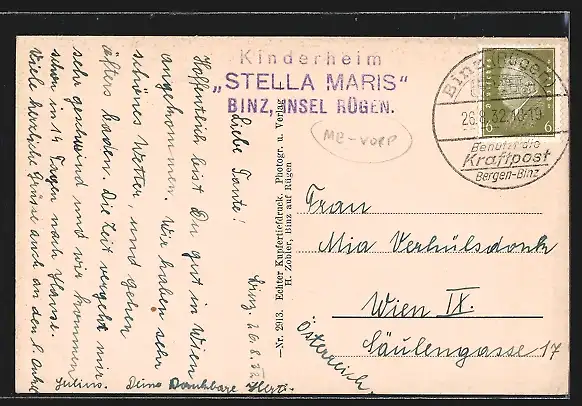 Kinderheim
„STELLA MARIS“
BINZ, INSEL RÜGEN.
Binz (Rügen)
26.8.32.18-19
Benutzt die
Kraftpost
Bergen-Binz
6 6
ME-VORP
Binz, 26.8.32
Liebe Tante!
Hoffentlich bist Du gut in Wien
angekommen. Wir haben sehr
schönes Wetter, und gehen
öfters baden. Die Zeit vergeht mir
sehr geschwind und wir kommen
schon in 14 Tagen nach Hause.
Viele herzliche Grüsse auch an den l. Onkel
Julius. Deine Dankbare Herta.
—Nr. 2913. Echter Kupfertiefdruck. Photogr. u. Verlag
H. Zobler, Binz auf Rügen
Frau
Mia Verhülsdonk
Wien IX.
Säulengasse 17
Österreich.